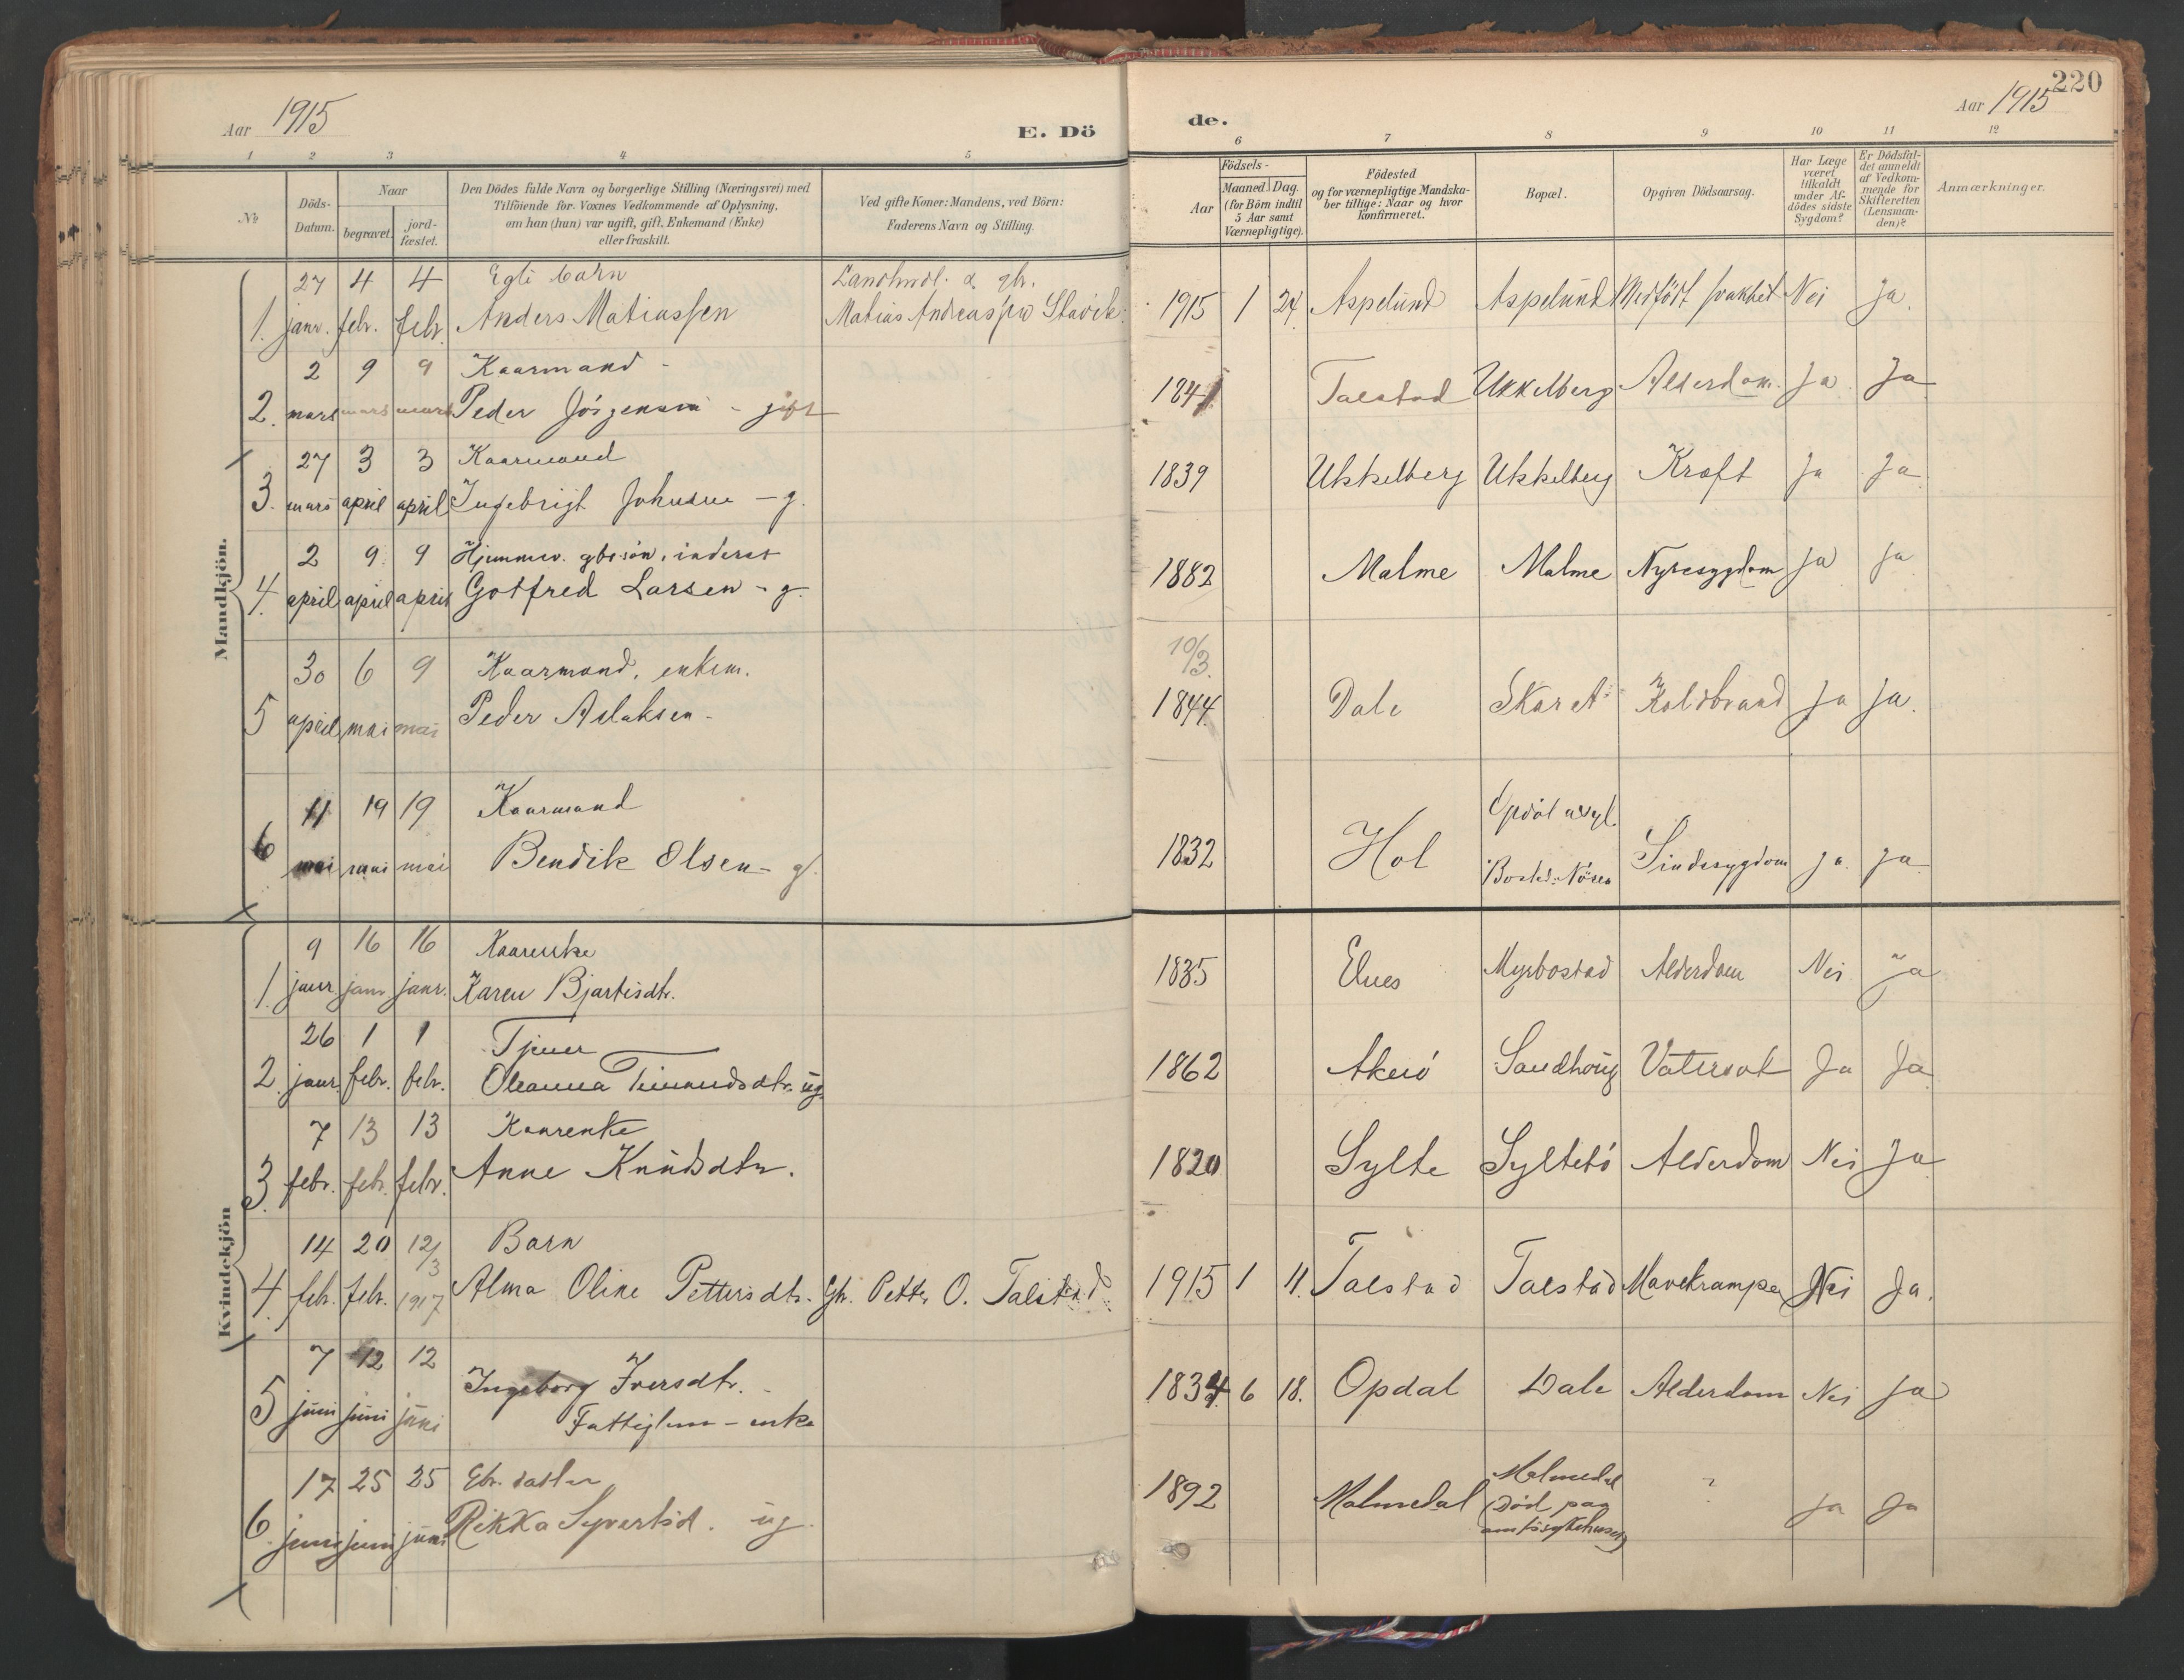 220
Aar 1915
E. Dö
de.
Aar 1915
1 2 3 4 5 6 7 8 9 10 11 12
No
Döds-Datum.
Naar
begravet.
jord-fæstet.
Den Dödes fulde Navn og borgerlige Stilling (Næringsvei) med
Tilföiende for Voxnes Vedkommende af Oplysning,
om han (hun) var ugift, gift, Enkemand (Enke)
eller fraskilt.
Ved gifte Koner: Mandens, ved Börn:
Faderens Navn og Stilling.
Födsels-
Aar
Maaned Dag.
(for Börn indtil
5 Aar samt
Værnepligtige).
Födested
og for værnepligtige Mandska-
ber tillige: Naar og hvor
konfirmeret.
Bopæl.
Opgiven Dödsaarsag.
Har Læge
været
tilkaldt
under Af-
dödes sidste
Sygdom?
Er Dödsfal-
det anmeldt
af Vedkom-
mende for
Skifteretten
(Lensman-
den)?
Anmærkninger.
Mandkjön.
27 4 4 Egte barn
1. janr. febr. febr. Anders Matiassen Matias Andreassen Stavik 1915 1 24 Aspelund Aspelund Medfödt svakhet Nei Ja.
2 9 9 Kaarmand
2. mars mars mars Peder Jörgensen - gift 1841 Talstad Ukkelberg Alderdom Ja Ja
27 3 3 Kaarmand
3. mars april april Ingebrigt Johnsen - g. 1839 Ukkelberg Ukkelberg Kræft Ja Ja
2 9 9 Hjemmev. gbr.sön, inderst
4. april april april Gotfred Larsen - g. 1882 Malme Malme Nyresygdom Ja Ja
30 6 9 Kaarmand, enkem. 10/3
5 april mai mai Peder Aslaksen 1844 Dale Skaret Koldbrand Ja Ja.
11 19 19 Kaarmand Opdöl asyl
6 mai mai mai Bendik Olsen - g. 1832 Hol Sindssygdom Ja Ja
Kvindekjön
9 16 16 Kaarenke
1. janr. janr. janr. Karen Bjartisdtr. 1835 Elnes Myrbostad Alderdom Nei Ja
26 1 1 Tjener
2. janr. febr. febr. Oleanna ug. 1862 Akerö Sandhoug Vatersot Ja Ja
7 13 13 Kaarenke
3. febr. febr. febr. Anne Knudsdtr. 1820 Sylte Syltebö Alderdom Nei Ja
14 20 12/3 Barn
4. febr. febr. 1917 Alma Oline Pettersdtr. Gbr. Petter O. Talstad 1915 1 11. Talstad Talstad Mavekramper Nei Ja.
7 12 12
5 juni juni juni Ingeborg Iversdtr. 1834 6 18. Opdal Dale Alderdom Nei Ja
Fattiglem - enke
17 25 25 Gbr. datter
6. juni juni juni Rikka Syvertsd. ug. 1892 Malmedal Malmedal ? Ja Ja
(Död paa
amtssykehuset)